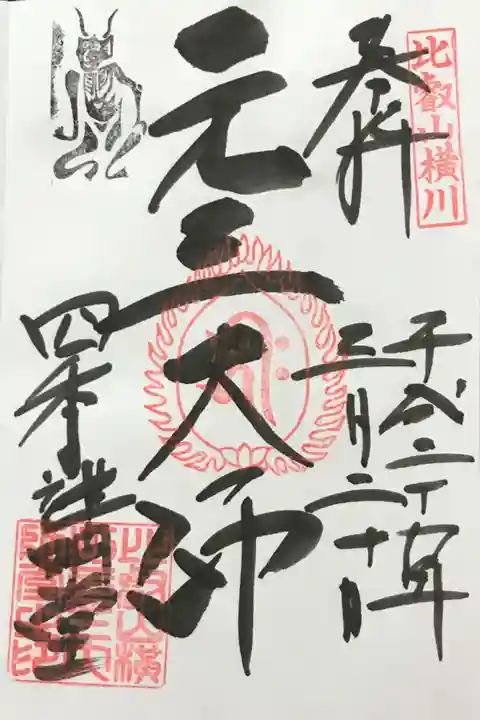 比叡山横川
奉拝
平成二十年
三月二十日
元三大師
四季講堂